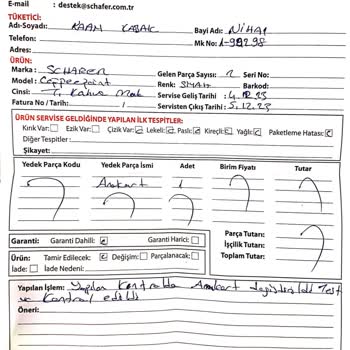 E-mail : destek@schafer.com.tr
TÜKETİCİ:
Adı-Soyadı: KAAN KABAK Bayi Adı: NİHAL
Telefon: Mk No: 1-98298
Adres:
ÜRÜN:
Marka: SCHAFER Gelen Parça Sayısı: 1 Seri No:
Model: Renk: SİYAH Barkod:
Cinsi: T. Kahve Mak Servise Geliş Tarihi: 4.12.23
Fatura No / Tarihi: / Servisten Çıkış Tarihi: 5.12.23
ÜRÜN SERVİSE GELDİĞİNDE YAPILAN İLK TESPİTLER:
Kırık Var: Ezik Var: Çizik Var: Lekeli: Paslı: Kireçli: Yağlı: Paketleme Hatası:
Diğer Tespitler:
Şikayet:
Yedek Parça Kodu Yedek Parça İsmi Adet Birim Fiyatı Tutar
Anakart 1
Parça Tutarı:
İşçilik Tutarı:
Toplam Tutar:
Garanti: Garanti Dahili: Garanti Harici:
Ürün: Tamir Edilecek: Değişim: Parçalanacak:
İade: İade Nedeni:
Yapılan İşlem: Yapılan Kontrolde Anakart değiştirildi Test
ve Kontrol edildi
Öneri: